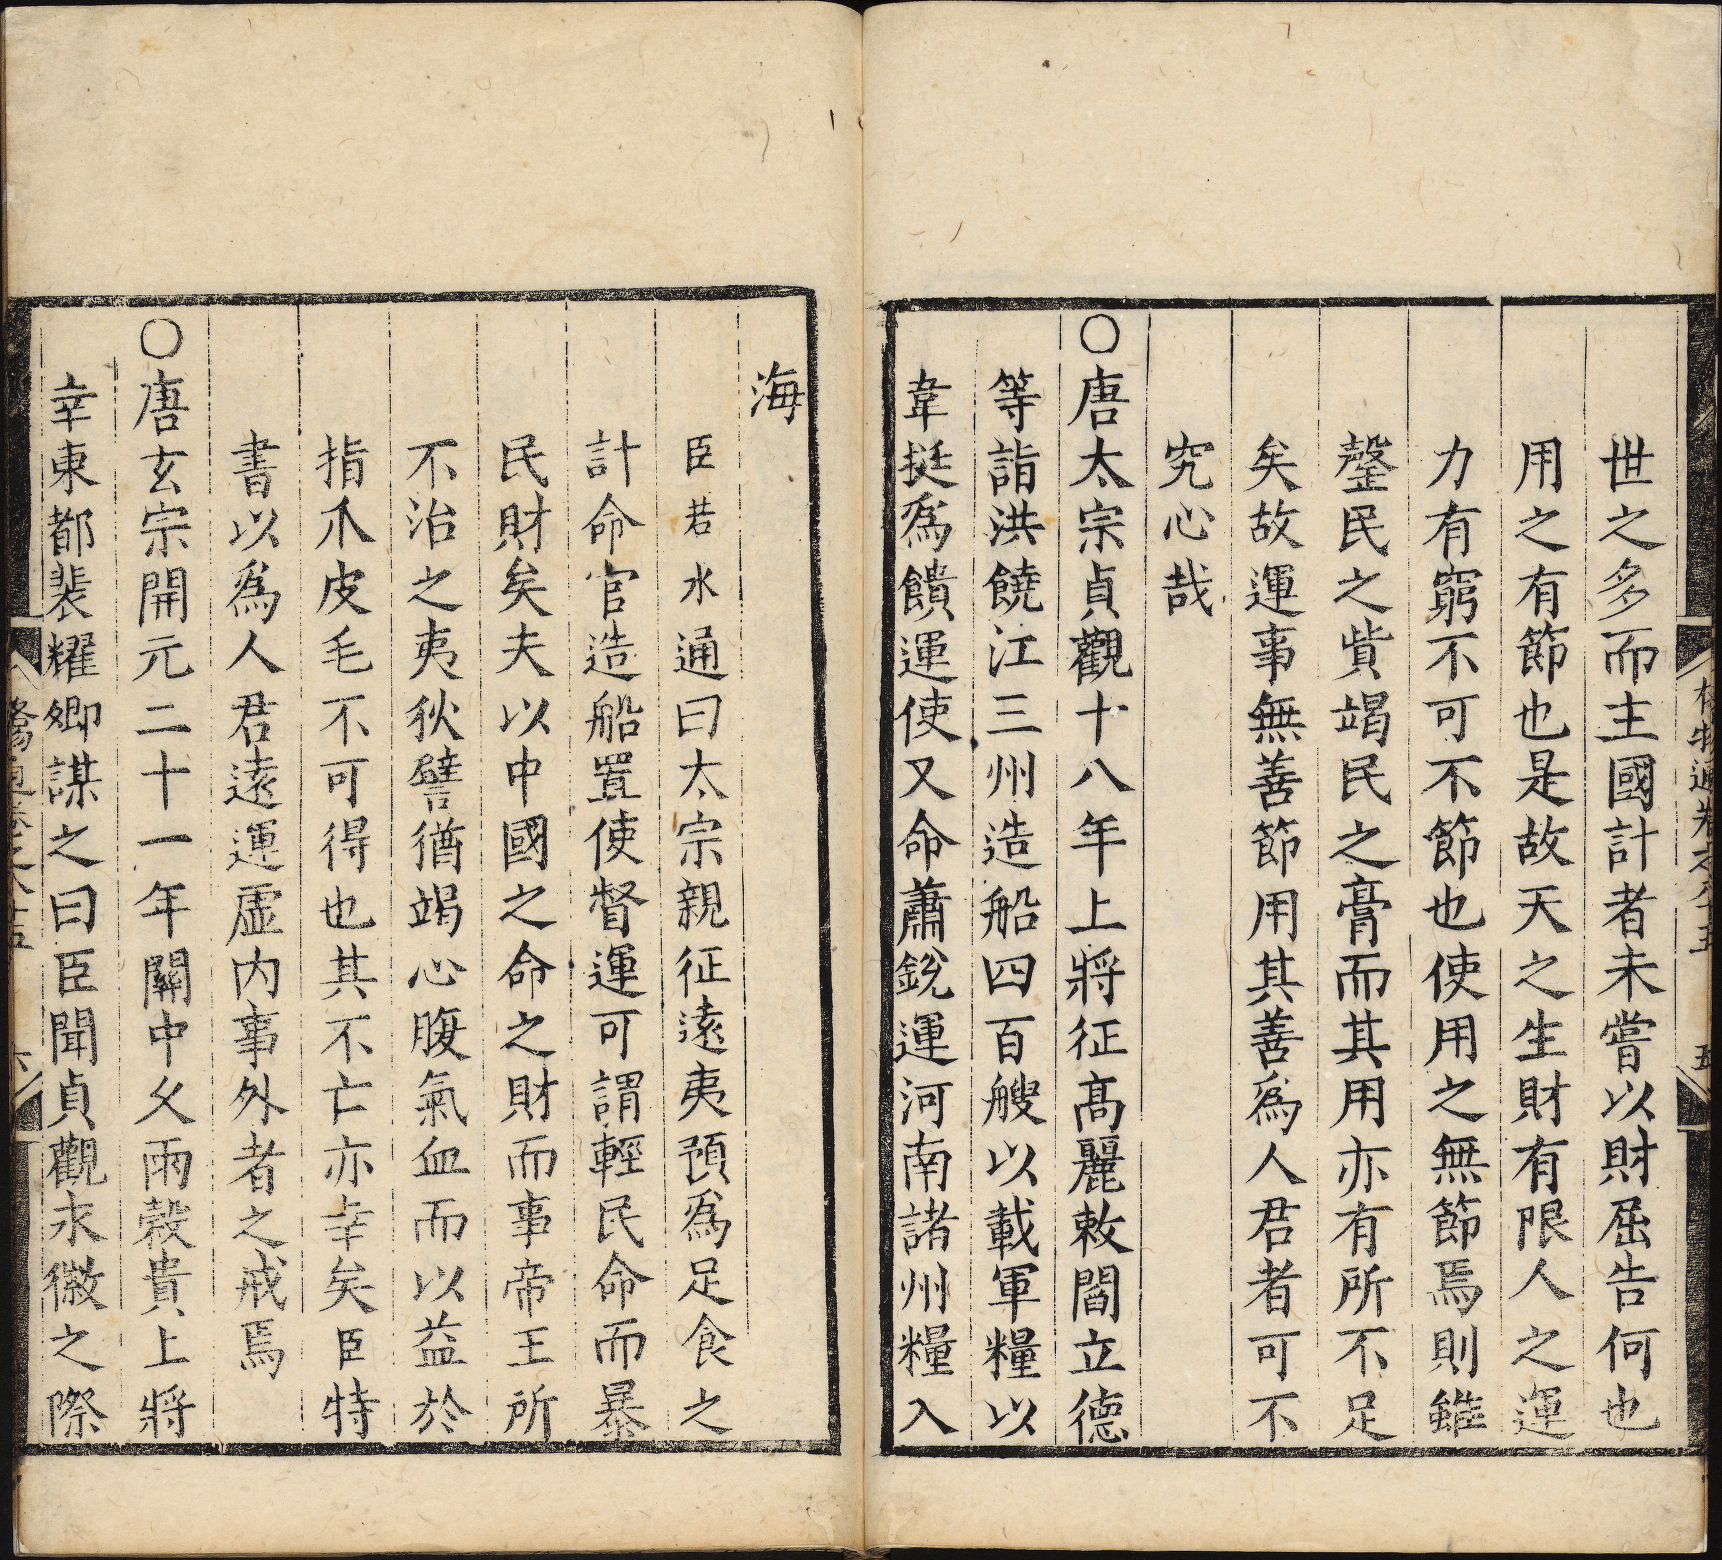 世之多而主國計者未嘗以財屈告何也
用之有節也是故天之生財有限人之運
力有窮不可不節也使用之無節焉則雖
罄民之貲竭民之膏而其用亦有所不足
矣故運事無善節用其善爲人君者可不
究心哉
○唐太宗貞觀十八年上將征髙麗敕閻立德
等詣洪饒江三州造船四百艘以載軍糧以
韋挺爲饋運使又命蕭銳運河南諸州糧入
海
臣若水通曰太宗親征遠夷預爲足食之
計命官造船置使督運可謂輕民命而暴
民財矣夫以中國之命之財而事帝王所
不治之夷狄譬猶竭心腹氣血而以益於
指爪皮毛不可得也其不亡亦幸矣臣特
書以爲人君遠運虛内事外者之戒焉
○唐玄宗開元二十一年關中久雨穀貴上將
幸東都裴耀卿謀之曰臣聞貞觀永徽之際
格物通卷之八十五
五